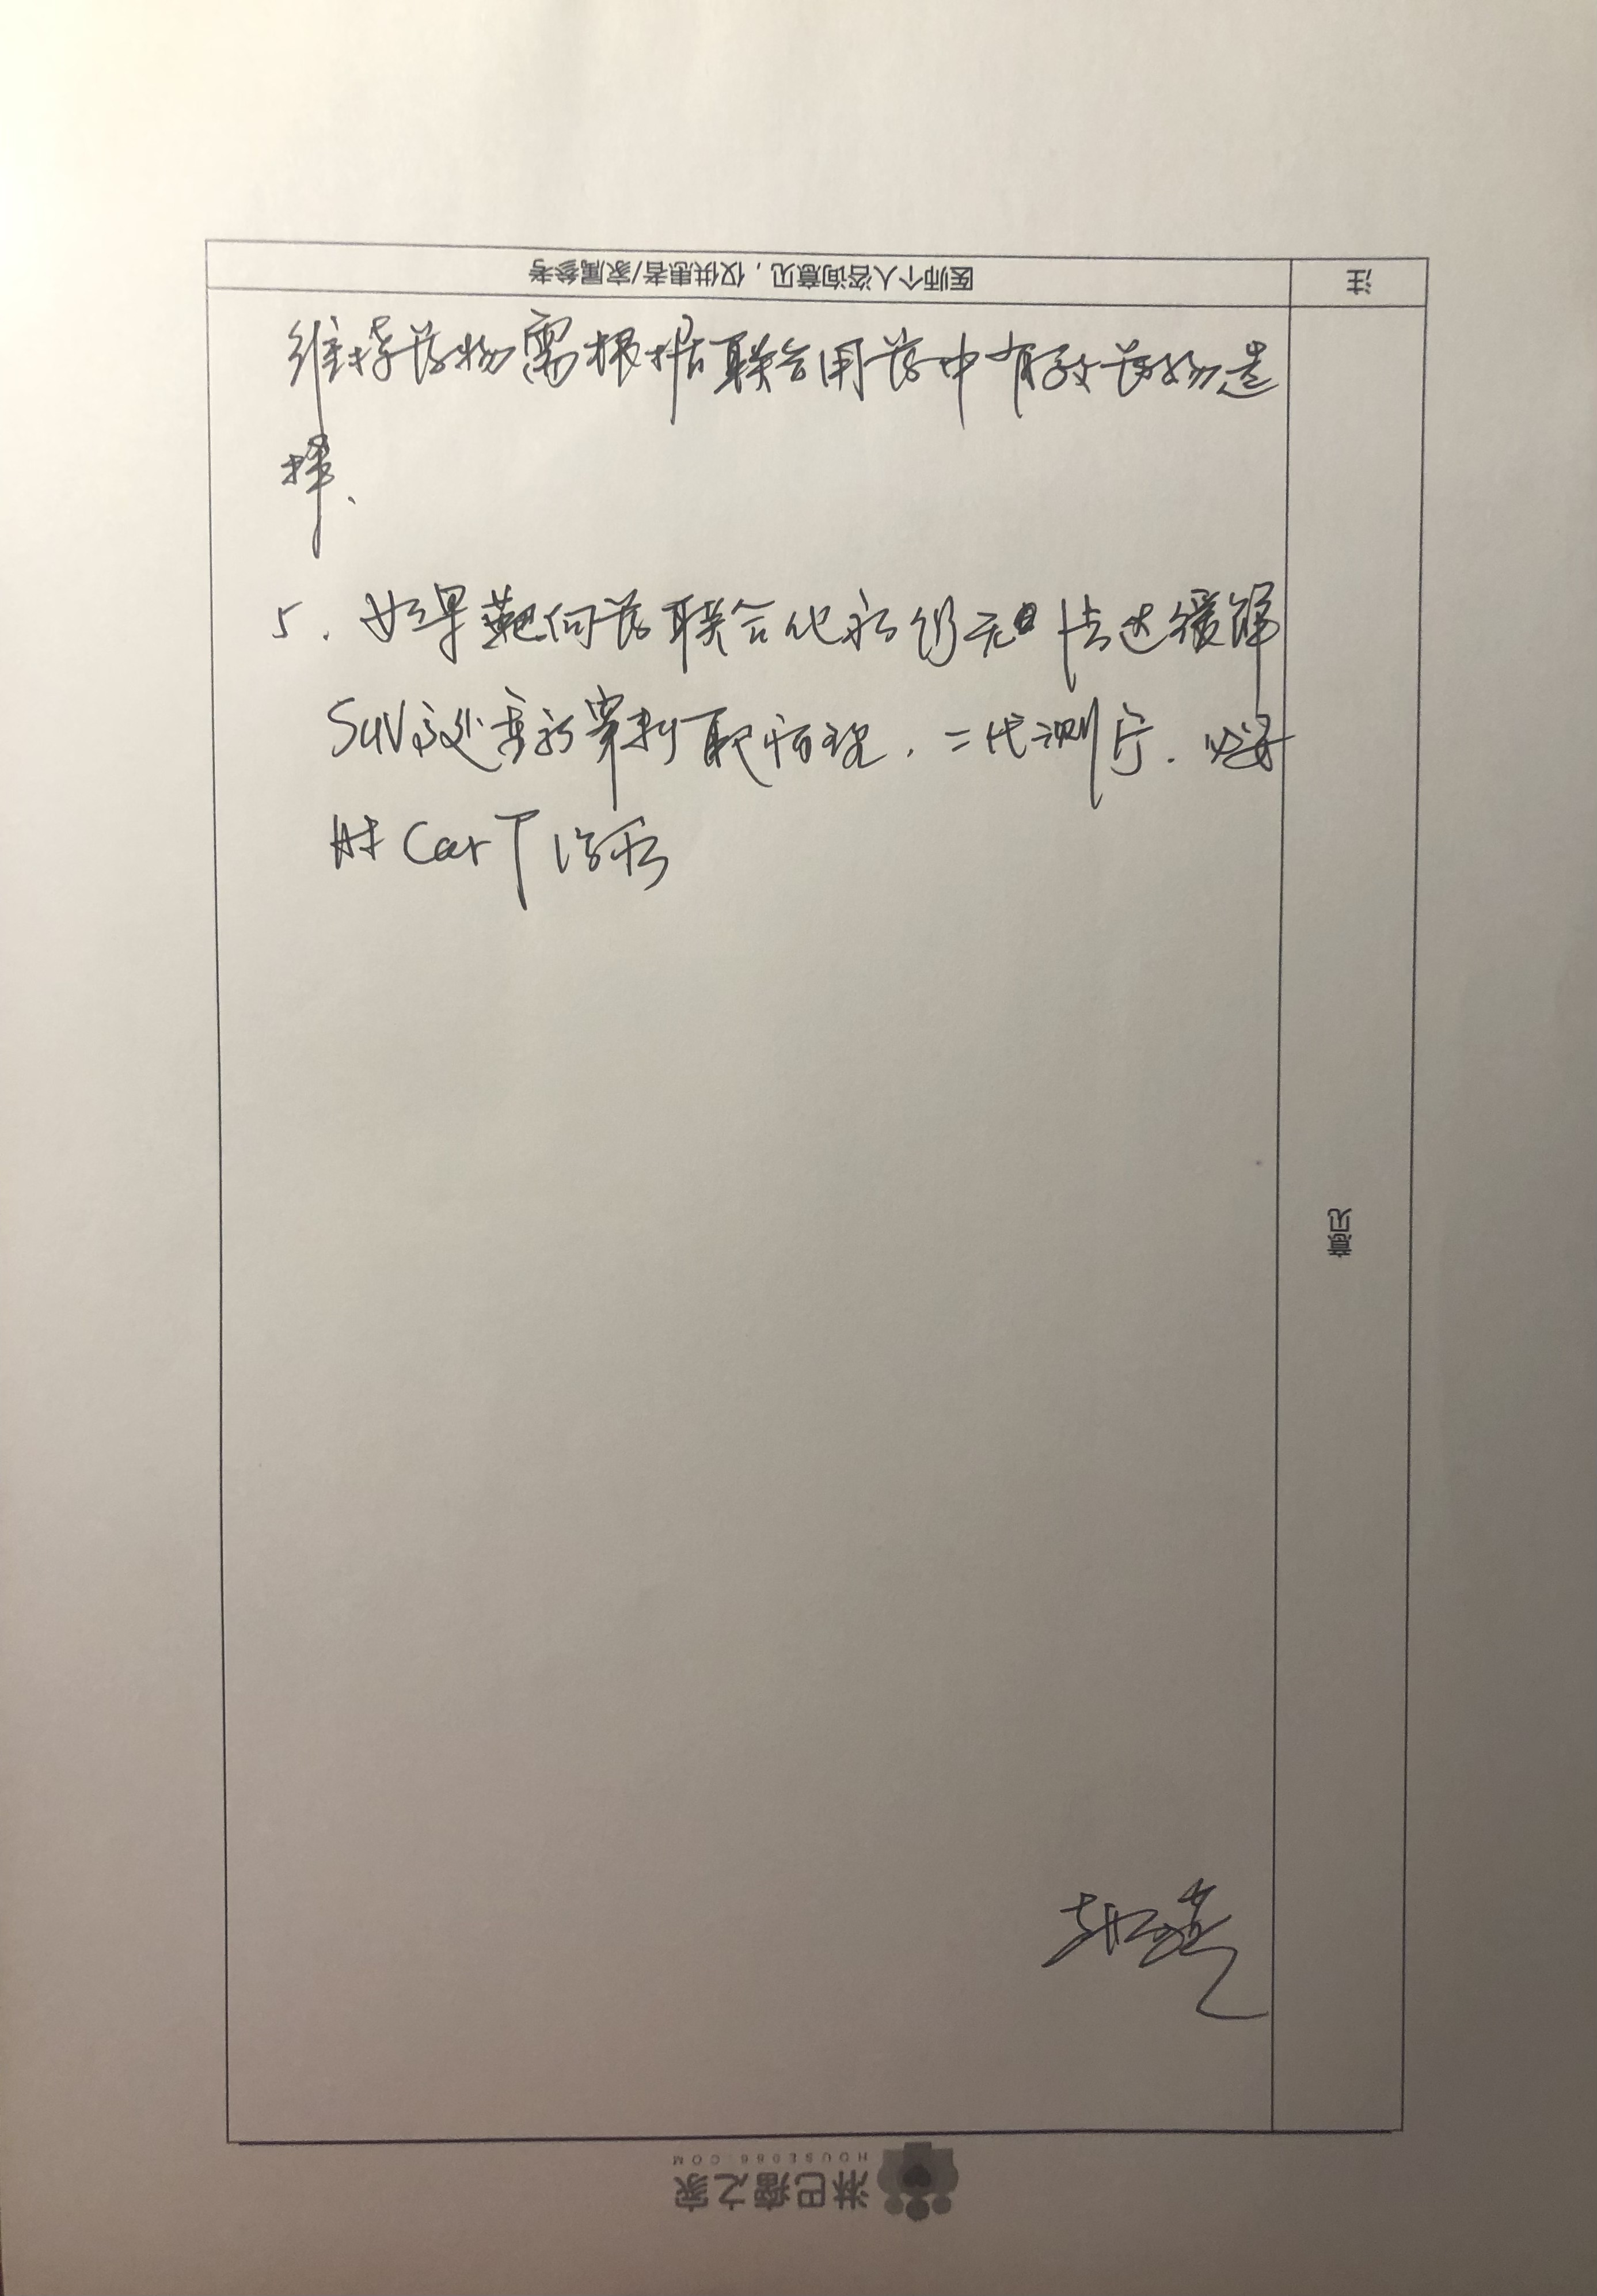 医师个人咨询意见，仅供患者/家属参考
注
维持药物需根据联合用药中有效药物选
择、
5. 如果靶向药联合化疗仍无法达缓解
SUV高处重新穿刺取病理，二代测序. 必要
时 CarT 治疗
意见
HOUSE086.COM
淋巴瘤之家